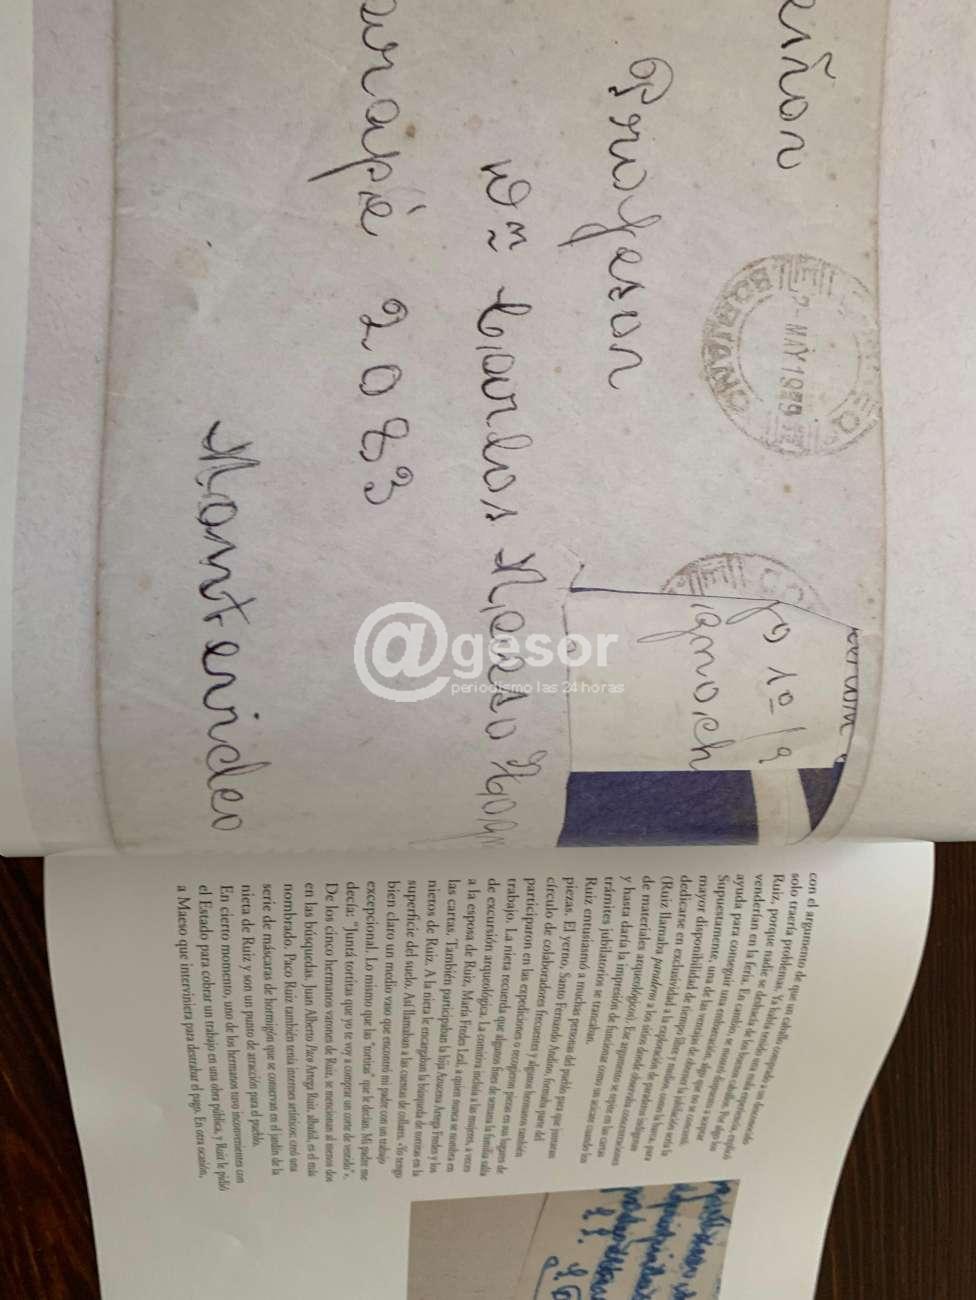 eñor
Profesor
Dn Carlos Maeso
arapé 2083
Montevideo
7- MAY 1979
CORREO
@gesor
periodismo las 24 horas
con el argumento de que un caballo comprado a un desconocido
solo traería problemas. Ya había tenido una mala experiencia, explicó
Ruiz, porque nadie se deshacía de los buenos caballos. Por algo los
venderían en la feria. En cambio, se mostró dispuesto a aceptar
ayuda para conseguir una embarcación, algo que no se concretó.
Supuestamente, una de las ventajas de obtener la jubilación sería la
mayor disponibilidad de tiempo libre y medios, como la barca, para
dedicarse en exclusividad a la exploración de paraderos indígenas
(Ruiz llamaba paraderos a los sitios donde observaba concentraciones
de materiales arqueológicos). Ese argumento se repite en las cartas
y hasta daría la impresión de funcionar como un acicate cuando los
trámites jubilatorios se trancaban.
Ruiz entusiasmó a muchas personas del pueblo para que juntaran
piezas. El yerno, Santo Fernando Andino, formaba parte del
círculo de colaboradores frecuentes y algunos hermanos también
participaron en las expediciones o recogieron piezas en sus lugares de
trabajo. La nieta recuerda que algunos fines de semana la familia salía
de excursión arqueológica. La comitiva incluía a las mujeres, a veces
a la esposa de Ruiz, María Fredes Leal, a quien nunca se nombra en
las cartas. También participaban la hija Azucena Arega Fredes y los
nietos de Ruiz. A la nieta le encargaban la búsqueda de tortitas en la
superficie del suelo. Así llamaban a las cuentas de collares. «Yo tengo
bien claro un medio vaso que encontró mi padre con un trabajo
excepcional. Lo mismo que las "tortitas" que le decían. Mi padre me
decía: "Juntá tortitas que yo te voy a comprar un corte de vestido"».
De los cinco hermanos varones de Ruiz, se mencionan al menos dos
en las búsquedas. Juan Alberto Paco Arega Ruiz, albañil, es el más
nombrado. Paco Ruiz también tenía intereses artísticos: creó una
serie de máscaras de hormigón que se conservan en el jardín de la
nieta de Ruiz y son un punto de atracción para el pueblo.
En cierto momento, uno de los hermanos tuvo inconvenientes con
el Estado para cobrar un trabajo en una obra pública, y Ruiz le pidió
a Maeso que interviniera para destrabar el pago. En otra ocasión,